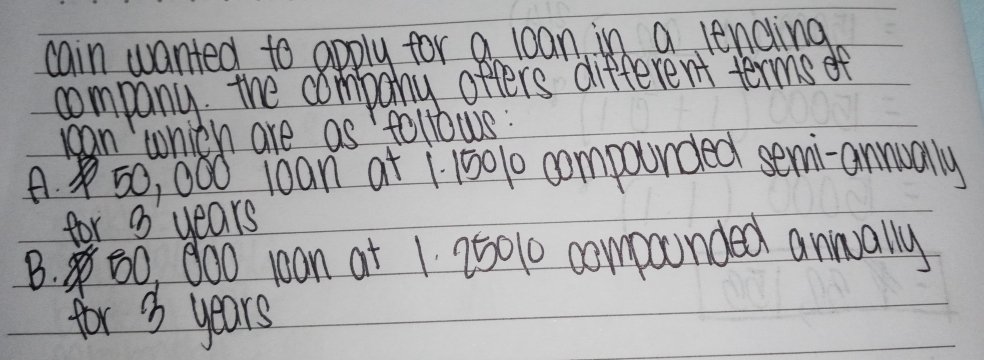 cain wanted to apply for a loan in a lending
company. the company offers different terms of
loan which are as follows:
A. ₱ 50,000 loan at 1.150/0 compounded semi-annually
for 3 years
B. ₱ 50,000 loan at 1.250/0 compounded annually
for 3 years